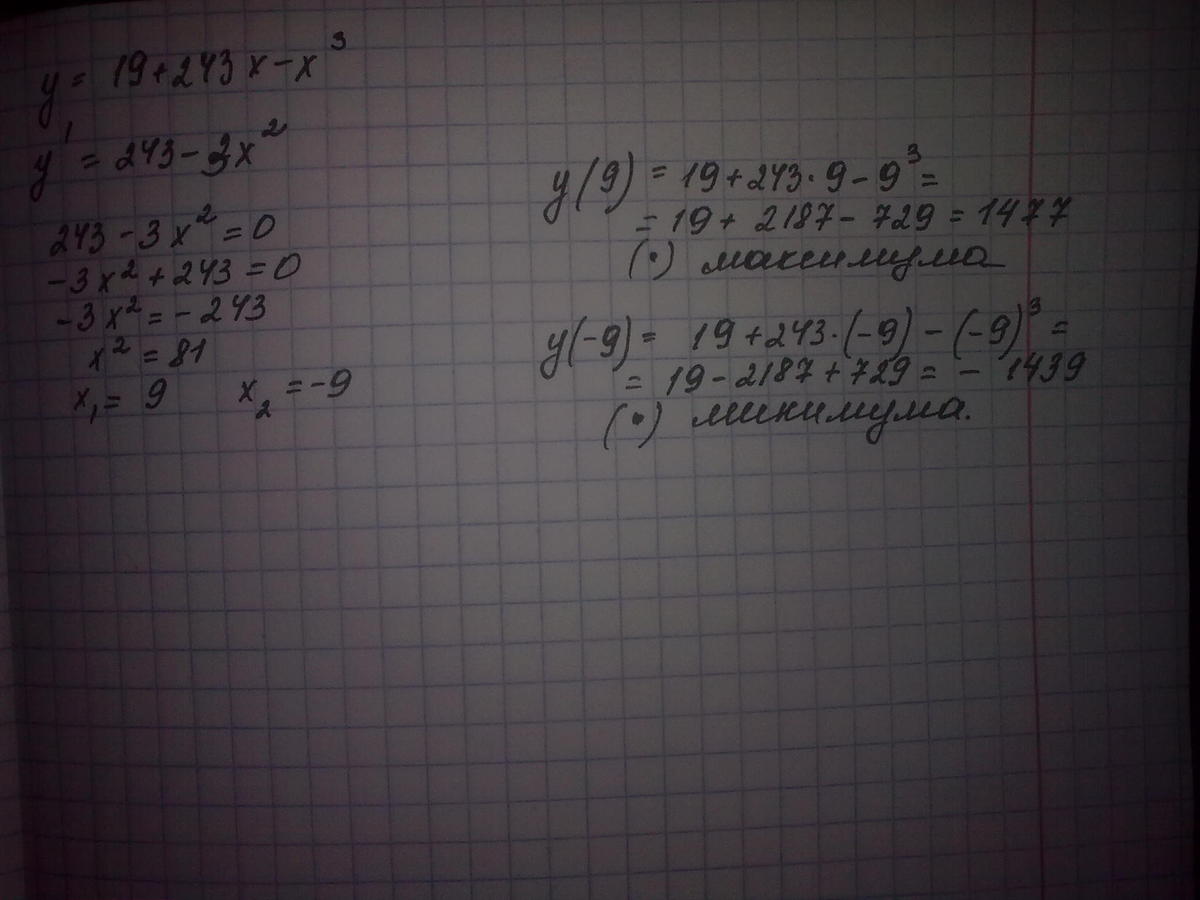 y = 19+243x-x³
y' = 243-3x²
243-3x²=0
-3x²+243=0
-3x²=-243
x²=81
x₁= 9 x₂=-9
y(9) = 19+243·9-9³=
= 19+ 2187- 729=1477
(·) максимума
y(-9)= 19+243·(-9)-(-9)³=
= 19-2187+729= - 1439
(·) минимума.